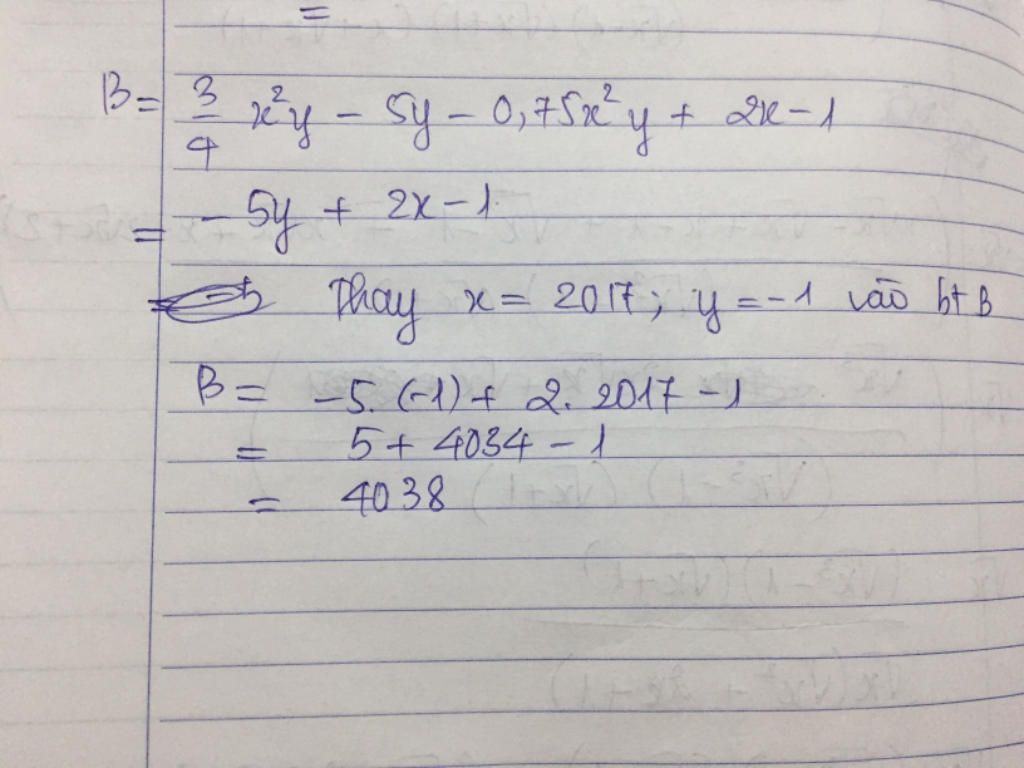 =
B = 3/4 x²y - 5y - 0,75x²y + 2x - 1
= - 5y + 2x - 1
Thay x = 2017; y = -1 vào bt B
B = -5. (-1) + 2. 2017 - 1
= 5 + 4034 - 1
= 4038